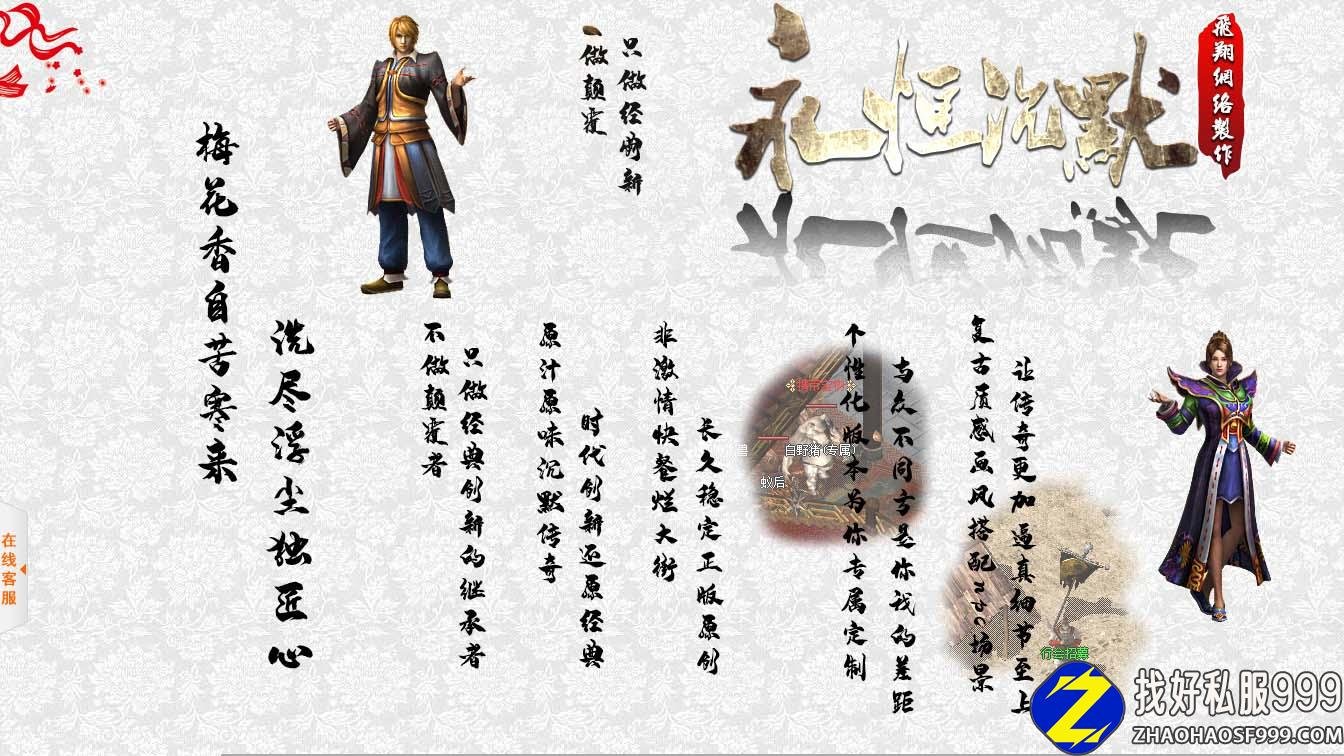 永恒沉默
飛翔網络製作
只做经典新
不做颠覆
梅花香自苦寒来
洗尽浮尘独匠心
不做颠覆者
只做经典创新的继承者
原汁原味沉默传奇
时代创新还原经典
非激情快餐烂大街
长久稳定正版原创
个性化版本为你专属定制
与众不同方是你我的差距
复古质感画风搭配npc场景
让传奇更加逼真细节至上
白野猪(专属)
蚁后
行会招募
在线客服
找好私服999
ZHAOHAOSF999.COM